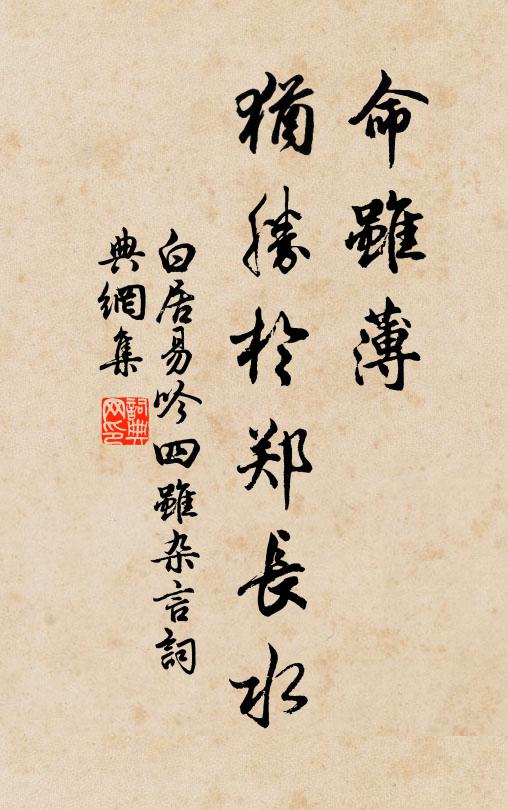 命雖薄
猶勝於郑長水
白居易吟四雖杂言詞
典網集
詞典
网印